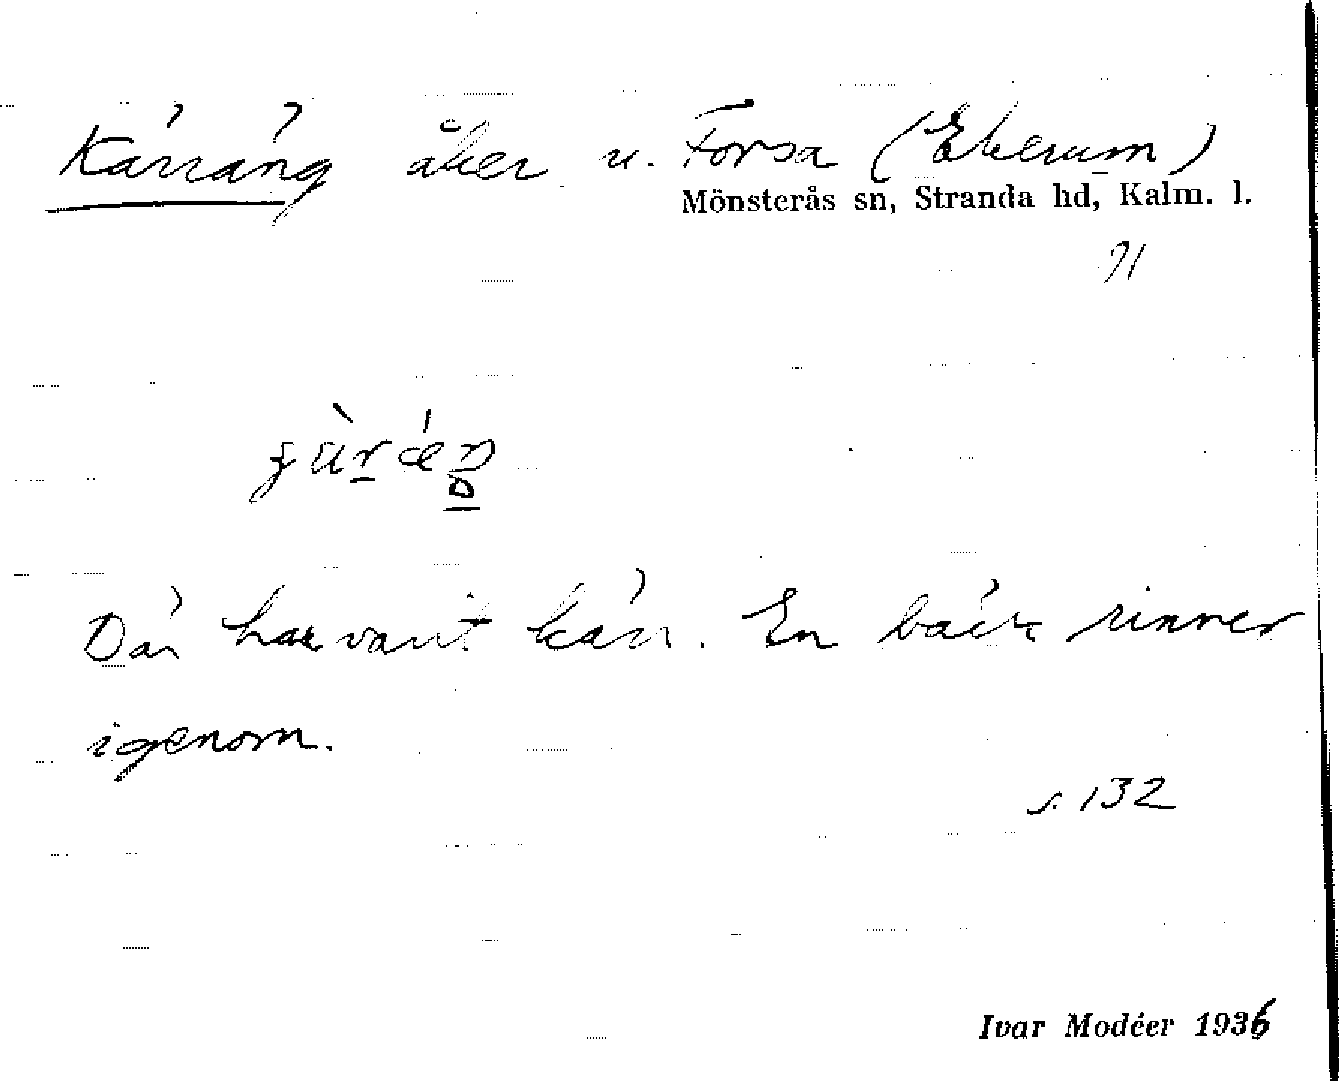 Kärräng åker u. Forsa (Ekerum)
Mönsterås sn, Stranda hd, Kalm. l.
Där har varit kärr. En bäck rinner
igenom.
s. 132
Ivar Modéer 1936